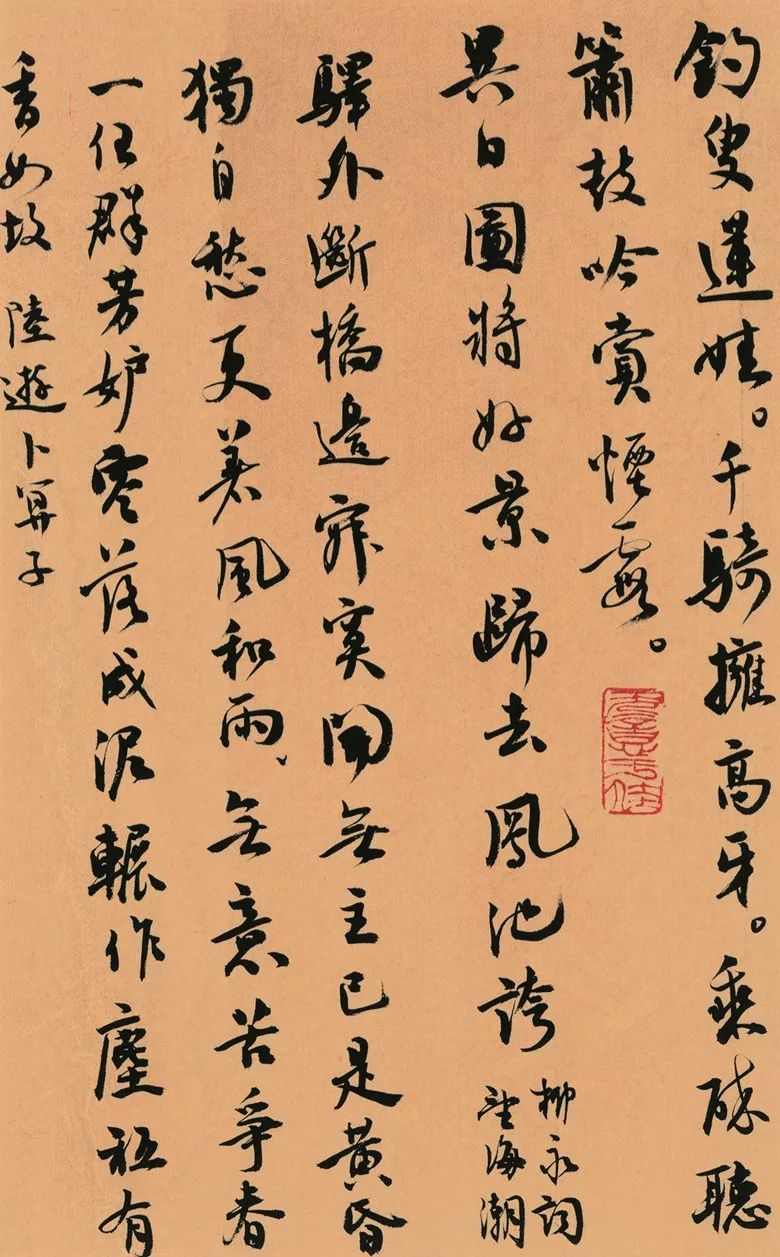 釣叟蓮娃。千騎擁高牙。乘醉聽
簫鼓吟賞煙霞。
異日圖將好景歸去鳳池誇
柳永詞
望海潮
驛外斷橋邊寂寞開無主已是黃昏
獨自愁更著風和雨、無意苦爭春
一任群芳妒零落成泥輾作塵祗有
香如故 陸遊卜算子